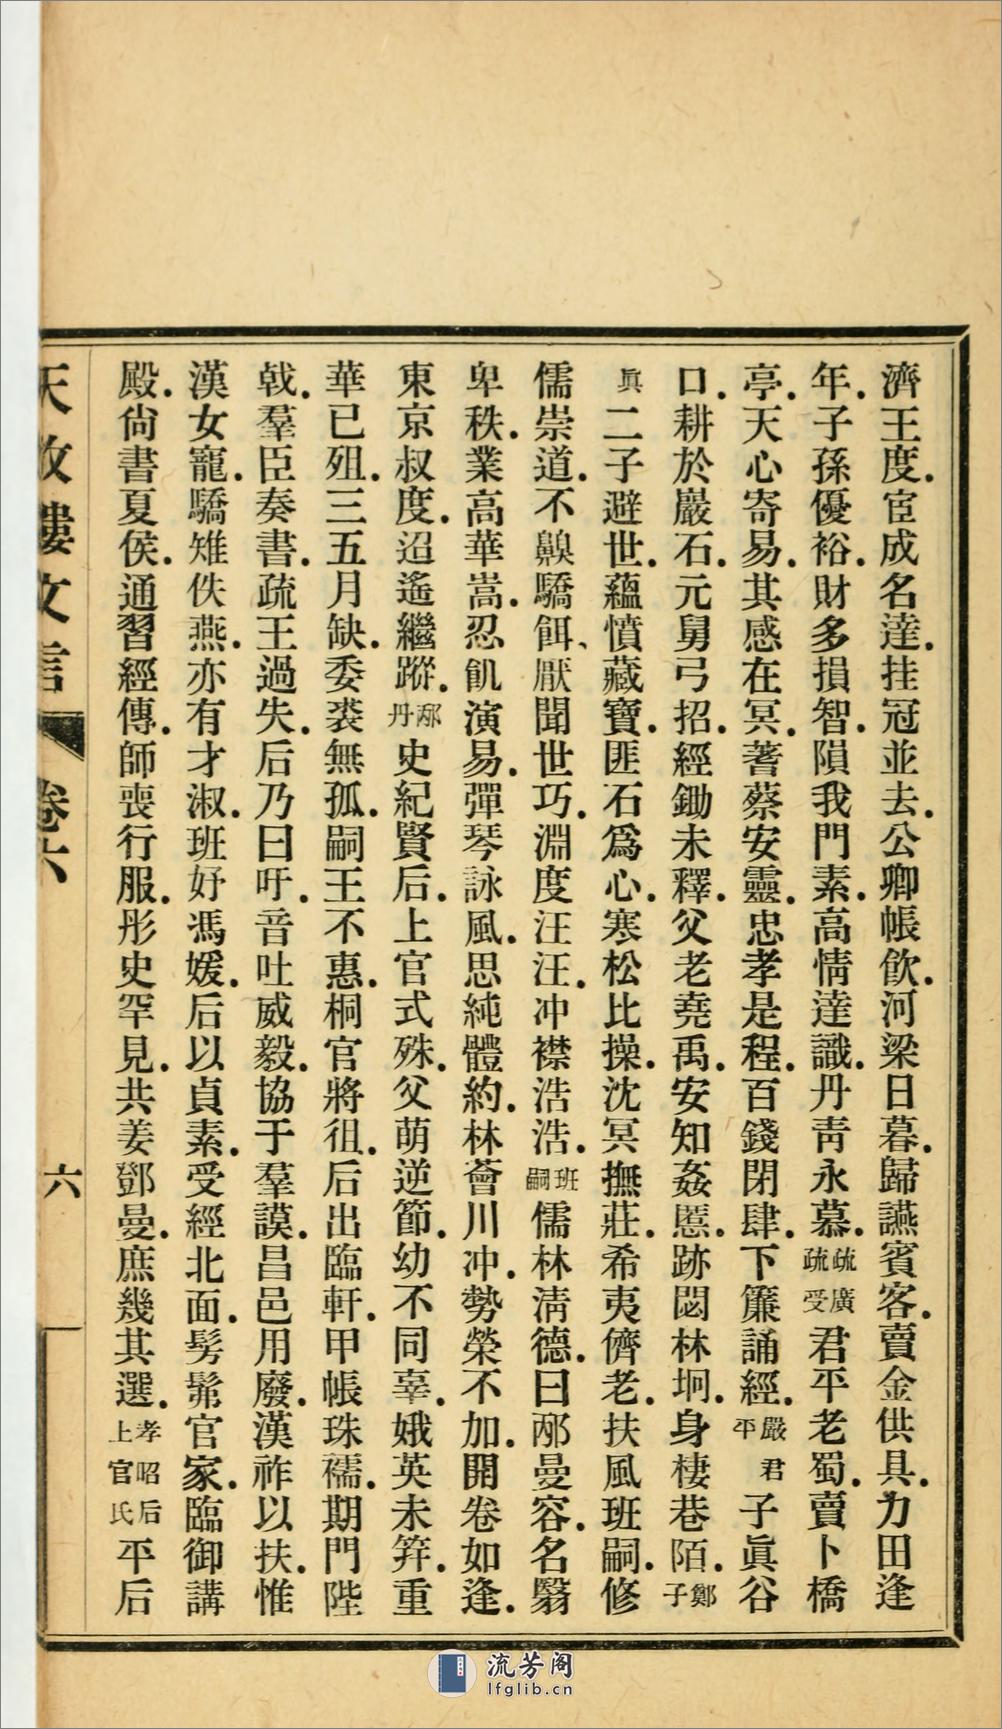 濟王度．宦成名達．挂冠並去．公卿帳飮．河梁日暮．歸讌賓客．賣金供具．力田逢
年．子孫優裕．財多損智．隕我門素．高情達識．丹靑永慕．疏廣疏受君平老蜀．賣卜橋
亭．天心寄易．其感在冥．蓍蔡安靈．忠孝是程．百錢閉肆．下簾誦經．嚴君平子眞谷
口．耕於嚴石．元舅弓招．經鋤未釋．父老堯禹．安知姦慝．跡閟林坰．身棲巷陌．鄭子
眞二子避世．蘊憤藏寶．匪石爲心．寒松比操．沈冥撫莊．希夷儕老．扶風班嗣．修
儒崇道．不齅驕餌、厭聞世巧．淵度汪汪．冲襟浩浩．班嗣儒林淸德．曰邴曼容．名翳
卑秩．業高華嵩．忍飢演易．彈琴詠風．思純體約．林薈川冲．勢榮不加．開卷如逢．
東京叔度．迢遙繼蹤．邴丹史紀賢后．上官式殊．父萌逆節．幼不同辜．娥英未笄．重
華已殂．三五月缺．委裘無孤．嗣王不惠．桐官將徂．后出臨軒．甲帳珠襦．期門陛
戟．羣臣奏書．疏王過失．后乃曰吁．音吐威毅．協于羣謨．昌邑用廢．漢祚以扶．惟
漢女寵．驕雉佚燕．亦有才淑．班妤馮媛．后以貞素．受經北面．髣髴官家．臨御講
殿．尙書夏侯．通習經傳．師喪行服．彤史罕見．共姜鄧曼．庶幾其選．孝昭上官后氏平后
天放樓文言
卷六
六
流芳阁
lfglib.cn